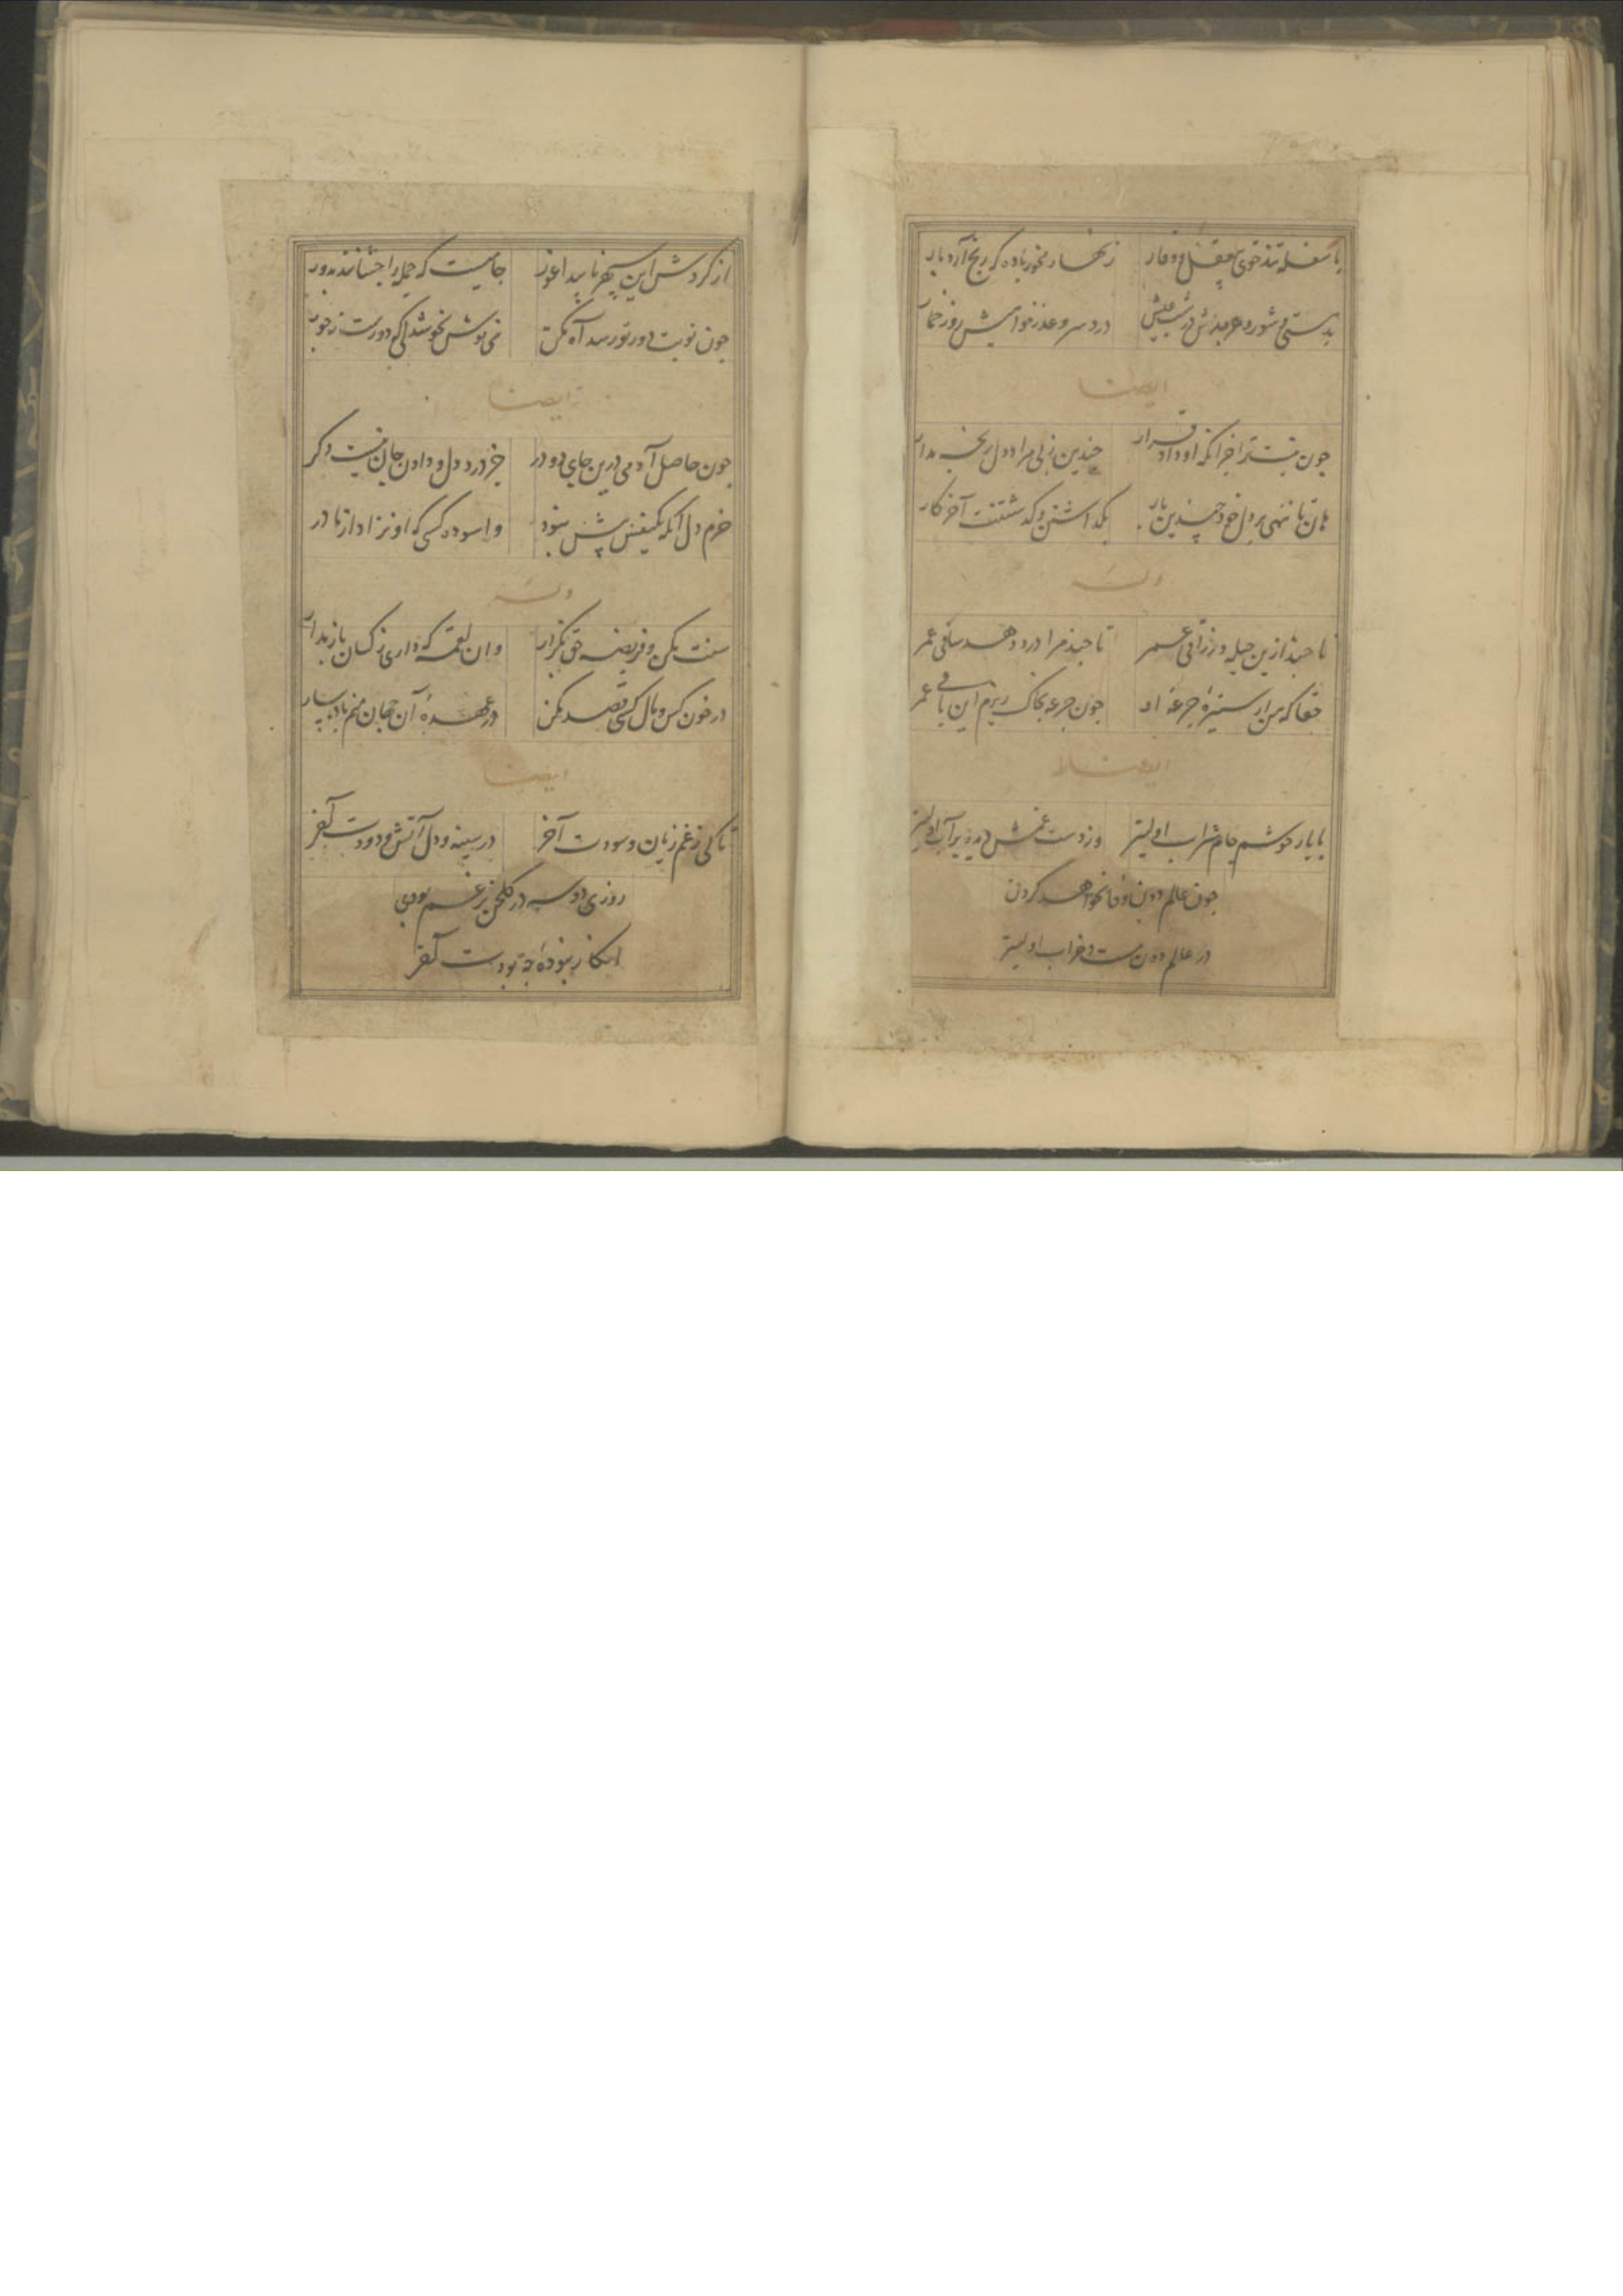 با سفله تندخوی بی‌عقل و وقار زنهار مخور باده که رنج آرد بار
بدمستی و شور و عربده‌اش در شب عیش دردسر و عذر خواهیش روز خمار
ایضا
چون نیست ترا جز آنکه او داد قرار چندین ز پی مراد دل رنجه مدار
هان تا ننهی بر دل خود چندین بار بگذاشتن و گذشتنست آخر کار
وله
تا چند ازین حیله و زراقی عمر تا چند مرا درد دهد ساقی عمر
حقا که من از ستیزهٔ جرعهٔ او چون جرعه بخاک ریزم این باقی عمر
ایضا
با یار خوشم جام شراب اولیتر وز دست غمش دیده پر آب اولیتر
چون عالم دون وفا نخواهد کردن
در عالم دون مست و خراب اولیتر
از گردش این سپهر ناپیدا غور جامیست که جمله را چشانند بدور
چون نوبت دور تو رسد آه مکن می نوش بخوشدلی که دورست نه جور
ایضا
چون حاصل آدمی درین جای دو در جز درد دل و دادن جان نیست دگر
خرم دل آنکه یکنفس پیش نبود و اسوده کسی که او نزاد از مادر
وله
سنت مکن و فریضه حق بگزار وان لقمه که داری ز کسان باز مدار
در خون کس و مال کسی قصد مکن در عهدهٔ آن جهان منم باده بیار
ایضا
تا کی ز غم زیان و سودت آخر در سینه و دل آتش و دودت آخر
روزی دو سه در گلخن پر غم بودی
انگار نبودهٔ چه بودت آخر